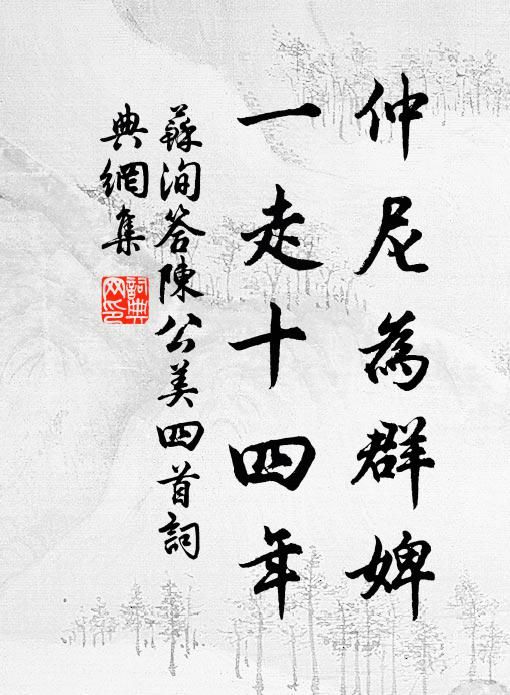 仲尼為群婢
一走十四年
蘇洵答陳公美四首詞
典網集
詞典
网印